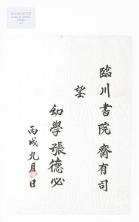 臨川書院齋有司
望
幼學張德必
丙戌九月 日